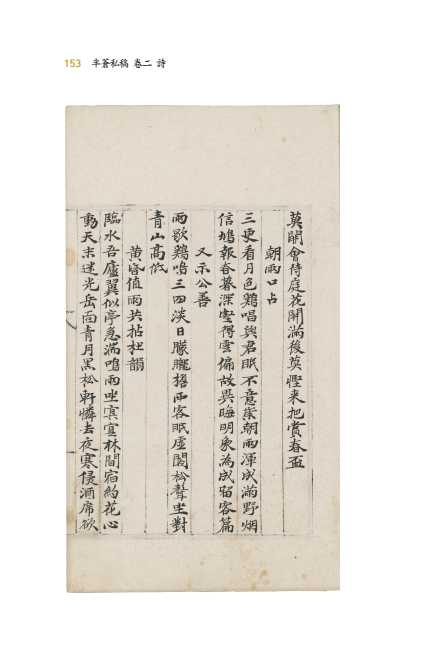 153 半蒼私稿 卷二 詩
莫關會待庭花開滿後莫慳來把賞春盃
朝雨口占
三更看月色鷄唱與君眠不意崇朝雨渾成滿野烟
信鳩報春暮深壑得雲偏故畏晦明象為成留客篇
又示公善
雨歇鷄鳴三四淡日朦朧攪客眠虛閣松聲坐對
青山高低
黃容值雨共拈杜韻
臨水吾廬翼似亭急湍鳴雨坐冥冥林間宿約花心
動天末迷光岳面青月黑松軒憐去夜寒侵酒席欲